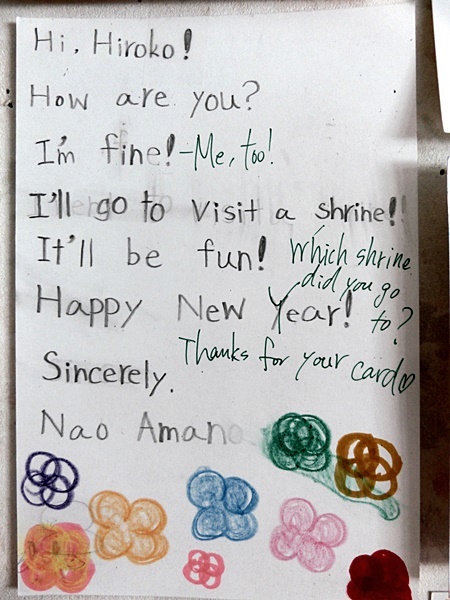 Hi, Hiroko!
How are you?
I'm fine! -Me, too!
I'll go to visit a shrine!!
It'll be fun! Which shrine
did you go
Happy New Year! to?
Thanks for your card♡
Sincerely.
Nao Amano